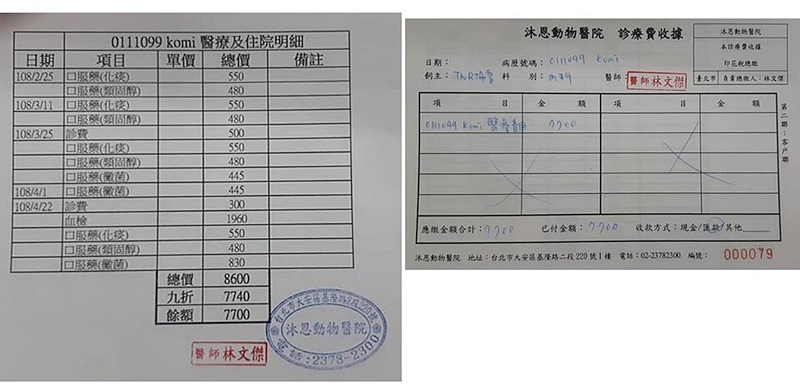 0111099 komi 醫療及住院明細
日期 項目 單價 總價 備註
108/2/25 口服藥(化痰) 550
口服藥(類固醇) 480
108/3/11 口服藥(化痰) 550
口服藥(類固醇) 480
108/3/25 診費 500
口服藥(化痰) 550
口服藥(類固醇) 480
口服藥(黴菌) 445
108/4/1 口服藥(黴菌) 445
108/4/22 診費 300
血檢 1960
口服藥(化痰) 550
口服藥(類固醇) 480
口服藥(黴菌) 830
總價 8600
九折 7740
餘額 7700
台北市大安區基隆路2段220號
沐恩動物醫院
電話:2378-2300
醫師 林文傑
沐恩動物醫院 診療費收據
沐恩動物醫院
本診療費收據
印花稅總繳
臺北市 負責總繳人:林文傑
日期: 病歷號碼:0111099 komi
飼主:TNR協會 科別:內科 醫師:醫師 林文傑
項目 金額 項目 金額
0111099 komi 醫療費用 7700
應繳金額合計:7700 已付金額:7700 收款方式:現金/匯款/其他
第二聯:客戶聯
沐恩動物醫院 地址:台北市大安區基隆路二段220號1樓 電話:02-23782300 編號:000079